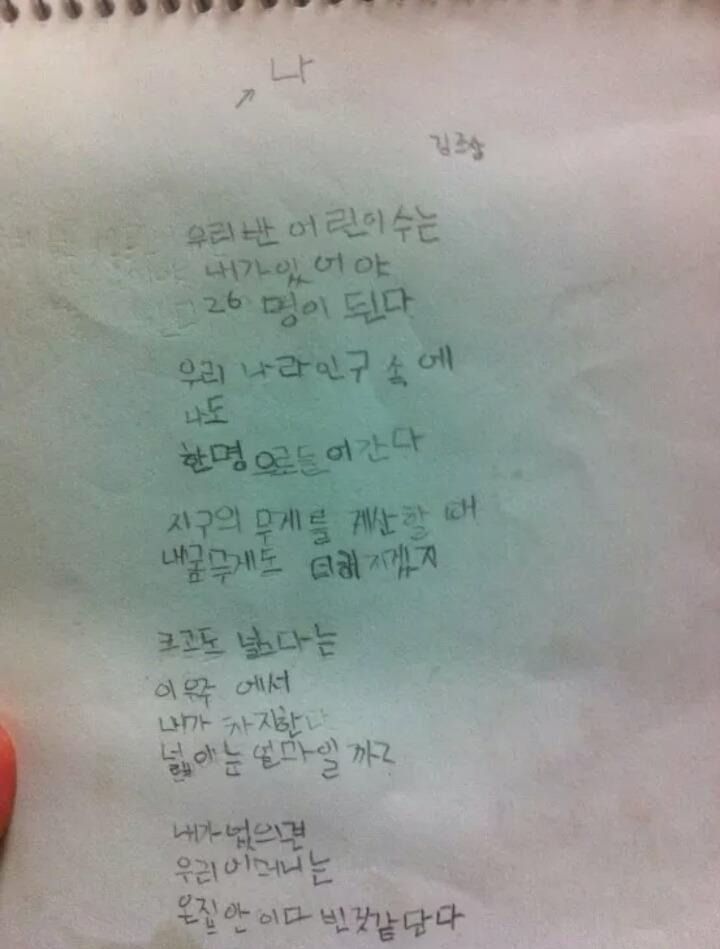 나
우리반 어린이수는
내가있어야
26명이 된다
우리 나라인구 속에
나도
한명으로들어간다
지구의 무게를 계산할 때
내몸무게도 더해지겠지
크고도 넓다는
이우주에서
내가 차지한다
넓이는 얼마일까?
내가없으면
우리어머니는
온집안이다빈것같단다